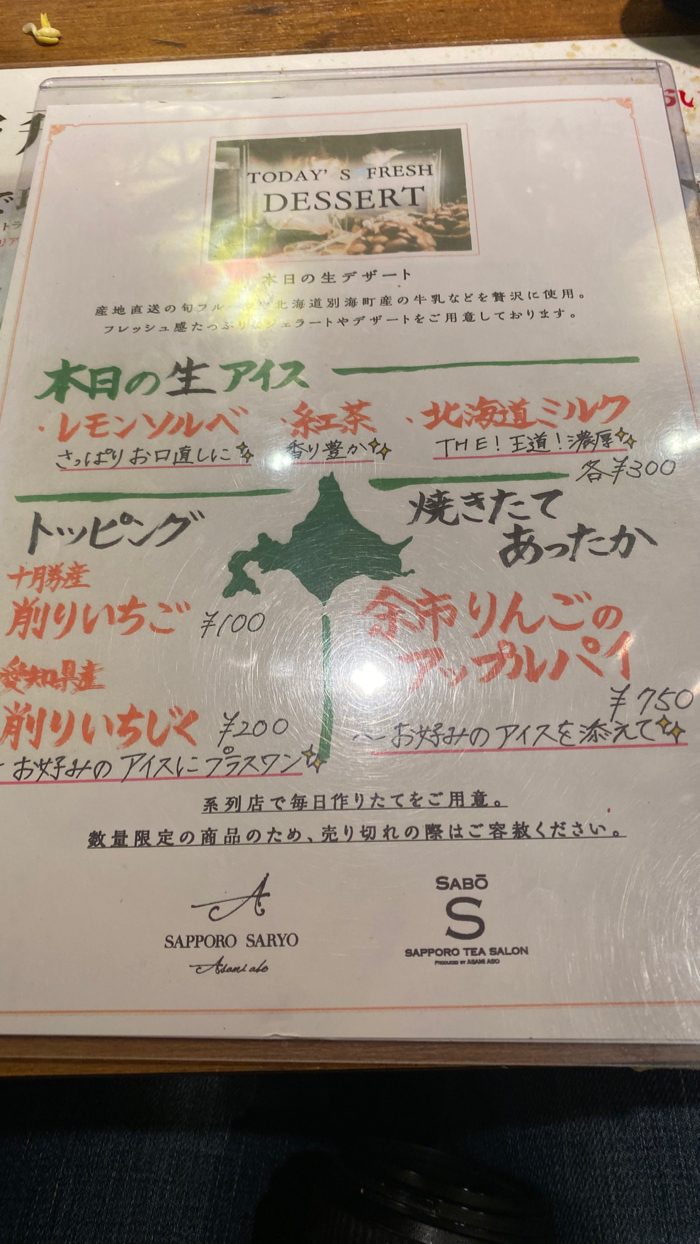 TODAY' S FRESH
DESSERT
本日の生デザート
産地直送の旬フルーツや北海道別海町産の牛乳などを贅沢に使用。
フレッシュ感たっぷりなジェラートやデザートをご用意しております。
本日の生アイス
・レモンソルベ ・紅茶 ・北海道ミルク
さっぱりお口直しに 香り豊か THE!王道!濃厚
各¥300
トッピング
十勝産
削りいちご ¥100
愛知県産
削りいちじく ¥200
お好みのアイスにプラスワン
焼きたて
あったか
余市りんごの
アップルパイ
¥750
〜お好みのアイスを添えて
系列店で毎日作りたてをご用意。
数量限定の商品のため、売り切れの際はご容赦ください。
A
SAPPORO SARYO
Asami abo
SABŌ
S
SAPPORO TEA SALON
PRODUCED BY ASAMI ABO